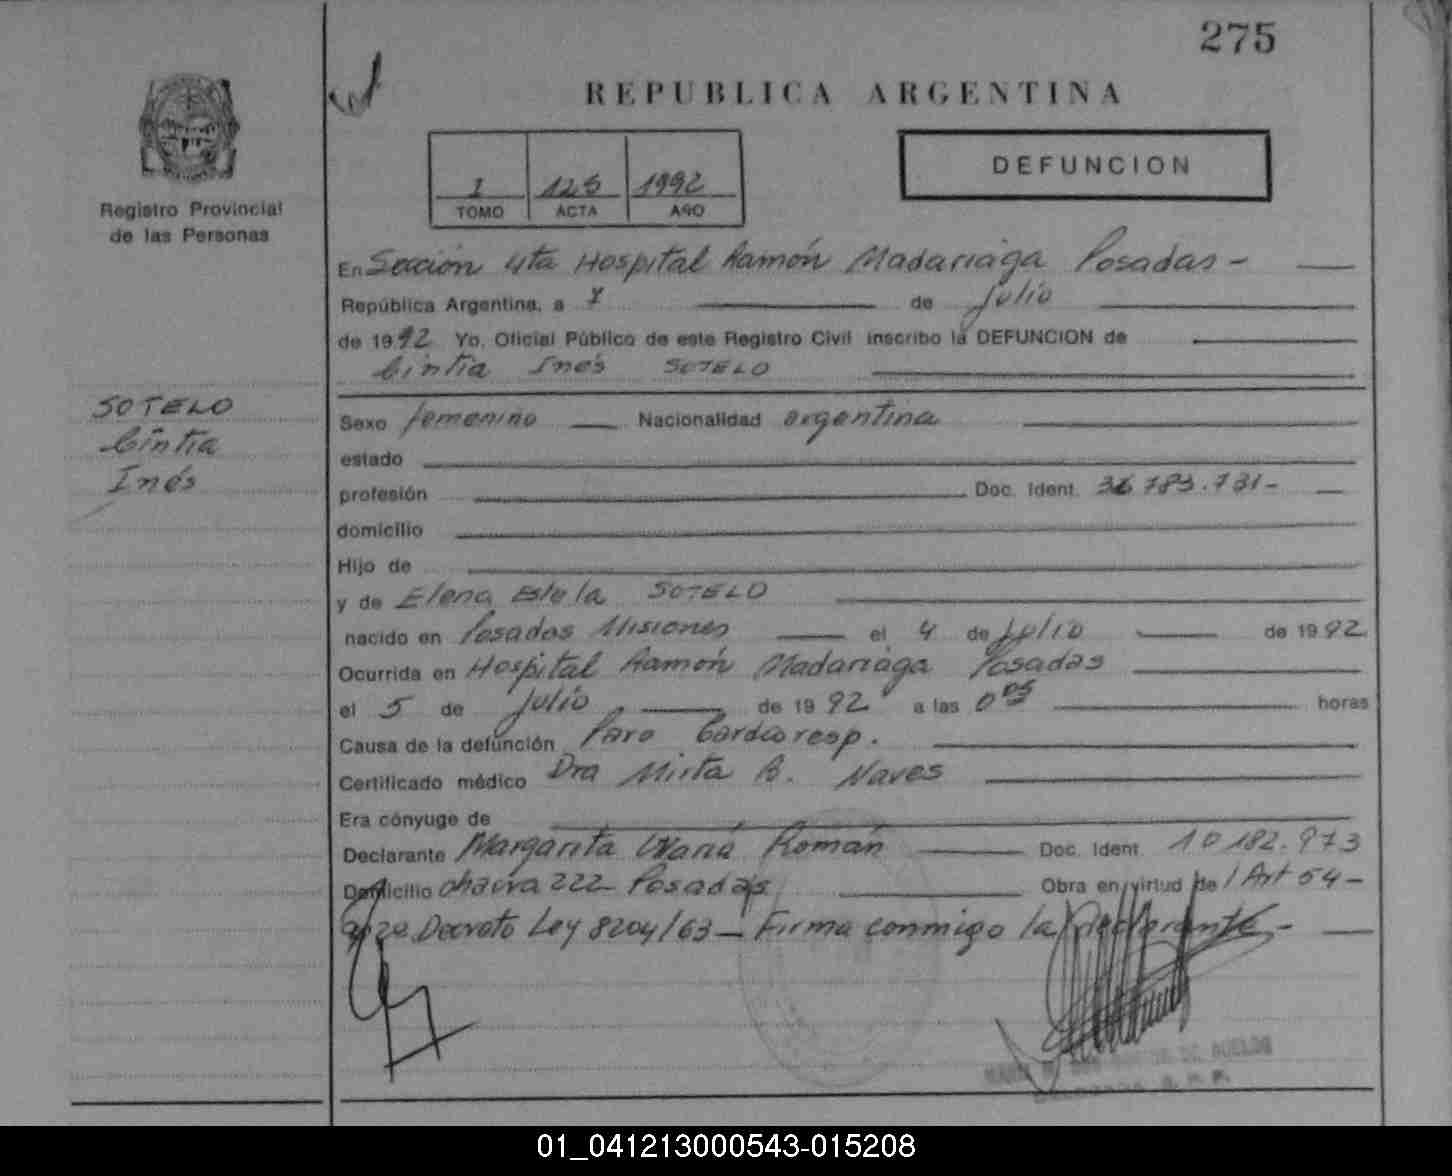 275
REPUBLICA ARGENTINA
Registro Provincial
de las Personas
1 125 1992
TOMO ACTA AÑO
DEFUNCION
En Sección 4ta Hospital Ramón Madariaga Posadas -
República Argentina, a 7 de julio
de 1992 Yo, Oficial Público de este Registro Civil inscribo la DEFUNCION de
Cintia Inés SOTELO
SOTELO
Cintia
Inés
Sexo femenino Nacionalidad argentina
estado
profesión Doc. Ident. 36.783.731-
domicilio
Hijo de
y de Elena Estela SOTELO
nacido en Posadas Misiones el 4 de julio de 1992
Ocurrida en Hospital Ramón Madariaga Posadas
el 5 de julio de 1992 a las 0 05 horas
Causa de la defunción Paro Cardioresp.
Certificado médico Dra Mirta B. Naves
Era cónyuge de
Declarante Margarita María Román Doc. Ident. 10.182.973
Domicilio chacra 222 Posadas Obra en virtud de l Art 54-
Decreto Ley 8204/63 - Firma conmigo la declarante -
01_041213000543-015208